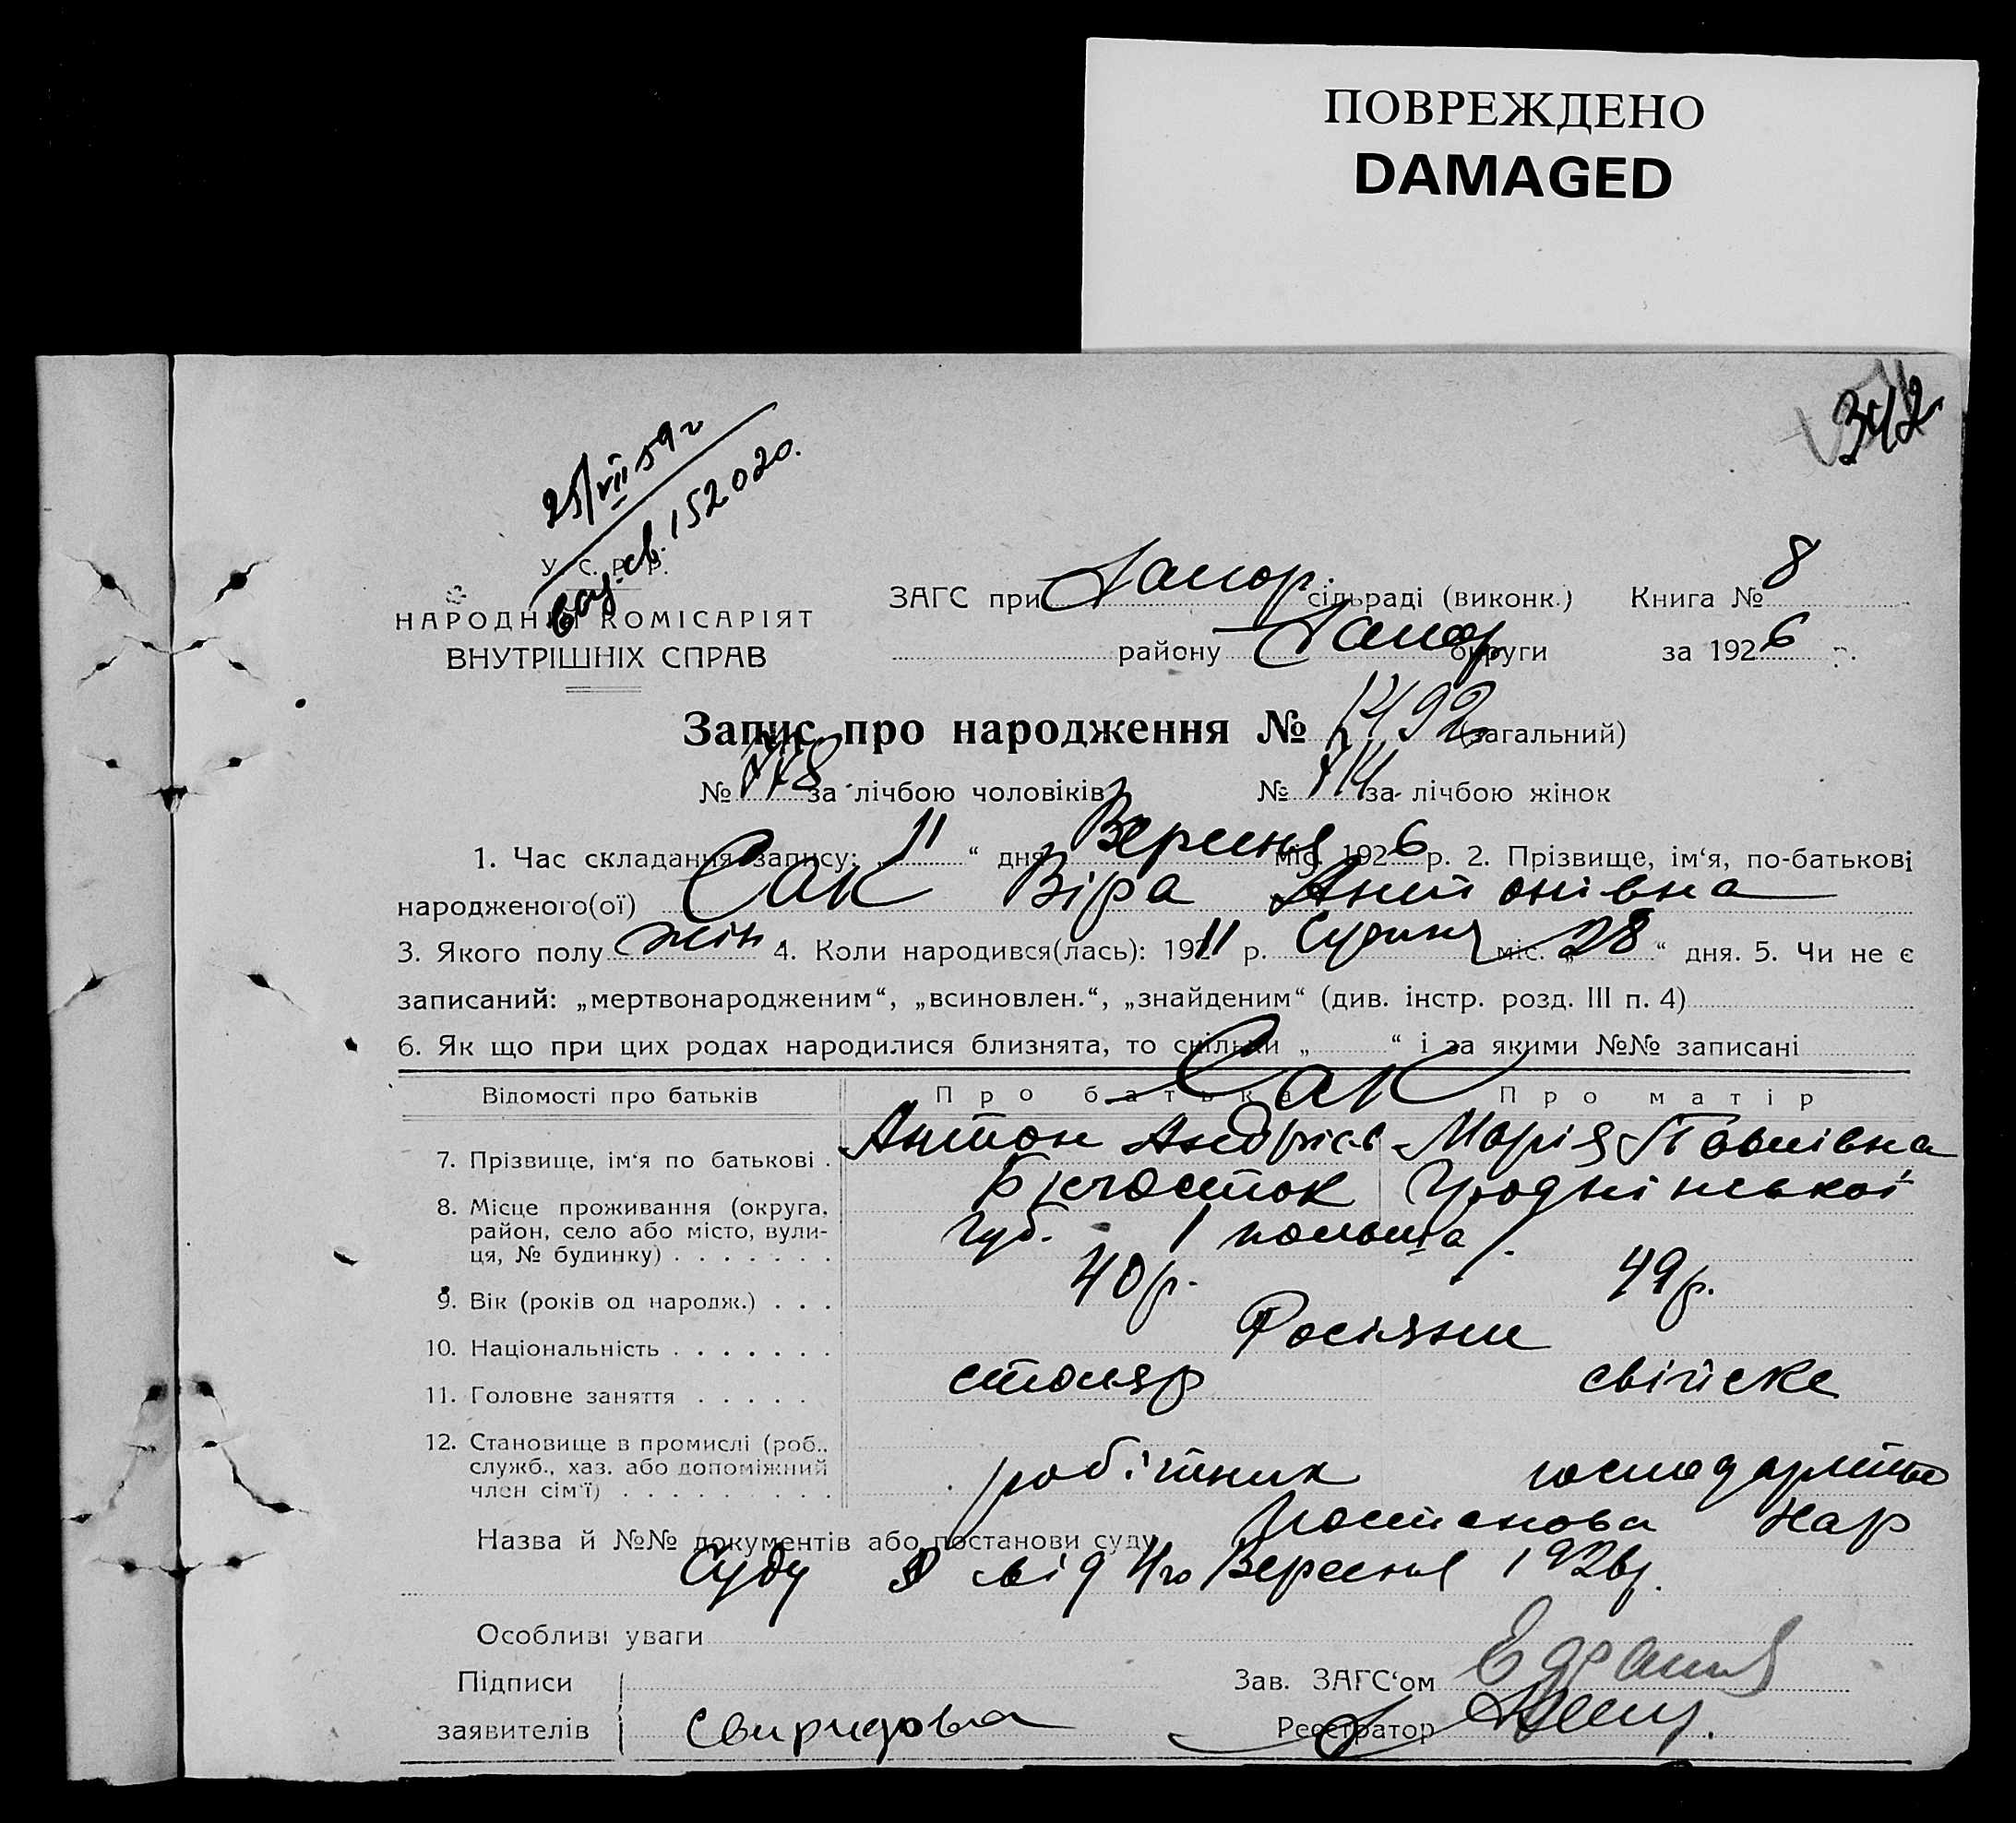 ПОВРЕЖДЕНО
DAMAGED
342
25/VII 59 г
152020.
У. С. Р. Р.
НАРОДНИЙ КОМІСАРІЯТ
ВНУТРІШНІХ СПРАВ
ЗАГС при Запор. сільраді (виконк.) Книга № 8
району Запор округи за 1926 р.
Запис про народження № 1492 (загальний)
№ 778 за лічбою чоловіків № 714 за лічбою жінок
1. Час складання запису: „11“ дня Вересня міс. 1926 р. 2. Прізвище, ім‘я, по-батькові
народженого(ої) Сак Віра Антонівна
3. Якого полу жін. 4. Коли народився(лась): 1911 р. Сірня міс. „28“ дня. 5. Чи не є
записаний: „мертвонародженим“, „всиновлен.“, „знайденим“ (див. інстр. розд. III п. 4)
6. Як що при цих родах народилися близнята, то скільки „ “ і за якими №№ записані
Відомості про батьків Про батька Сак Про матір
7. Прізвище, ім‘я по батькові . Антон Андрієв Марія Павлівна
8. Місце проживання (округа, район, село або місто, вулиця, № будинку) . . . . . . . Білосток Гроднінської
губ. / польша /.
9. Вік (років од народж.) . . . 40 р. 49 р.
10. Національність . . . . . . . Росіяни
11. Головне заняття . . . . . столяр свійске
12. Становище в промислі (роб., служб., хаз. або допоміжний член сім‘ї) . . . . . . . . . робітник
Назва й №№ документів або постанови суду Постанова Нар
Суду від 4го Вересня 1926 р.
Особливі уваги
Підписи Зав. ЗАГС‘ом
заявителів Свиридова Реєстратор